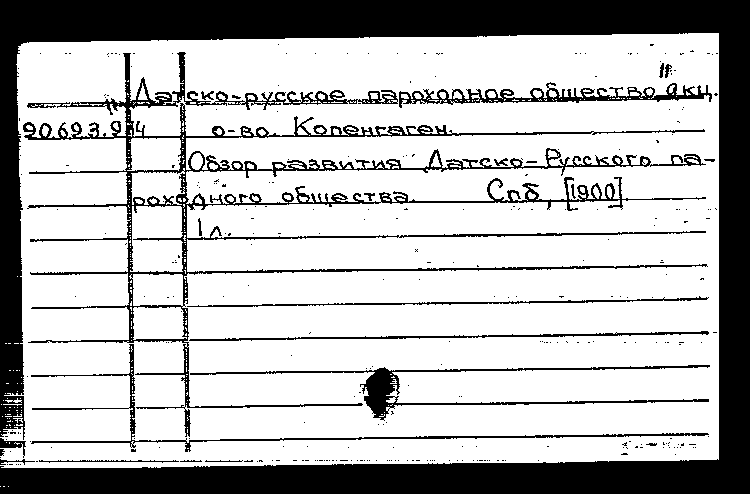 "Датско-русское пароходное общество," акц.
20.693.914 о-во. Копенгаген.
Обзор развития Датско-Русского па-
роходного общества. Спб, [1900].
1 л.